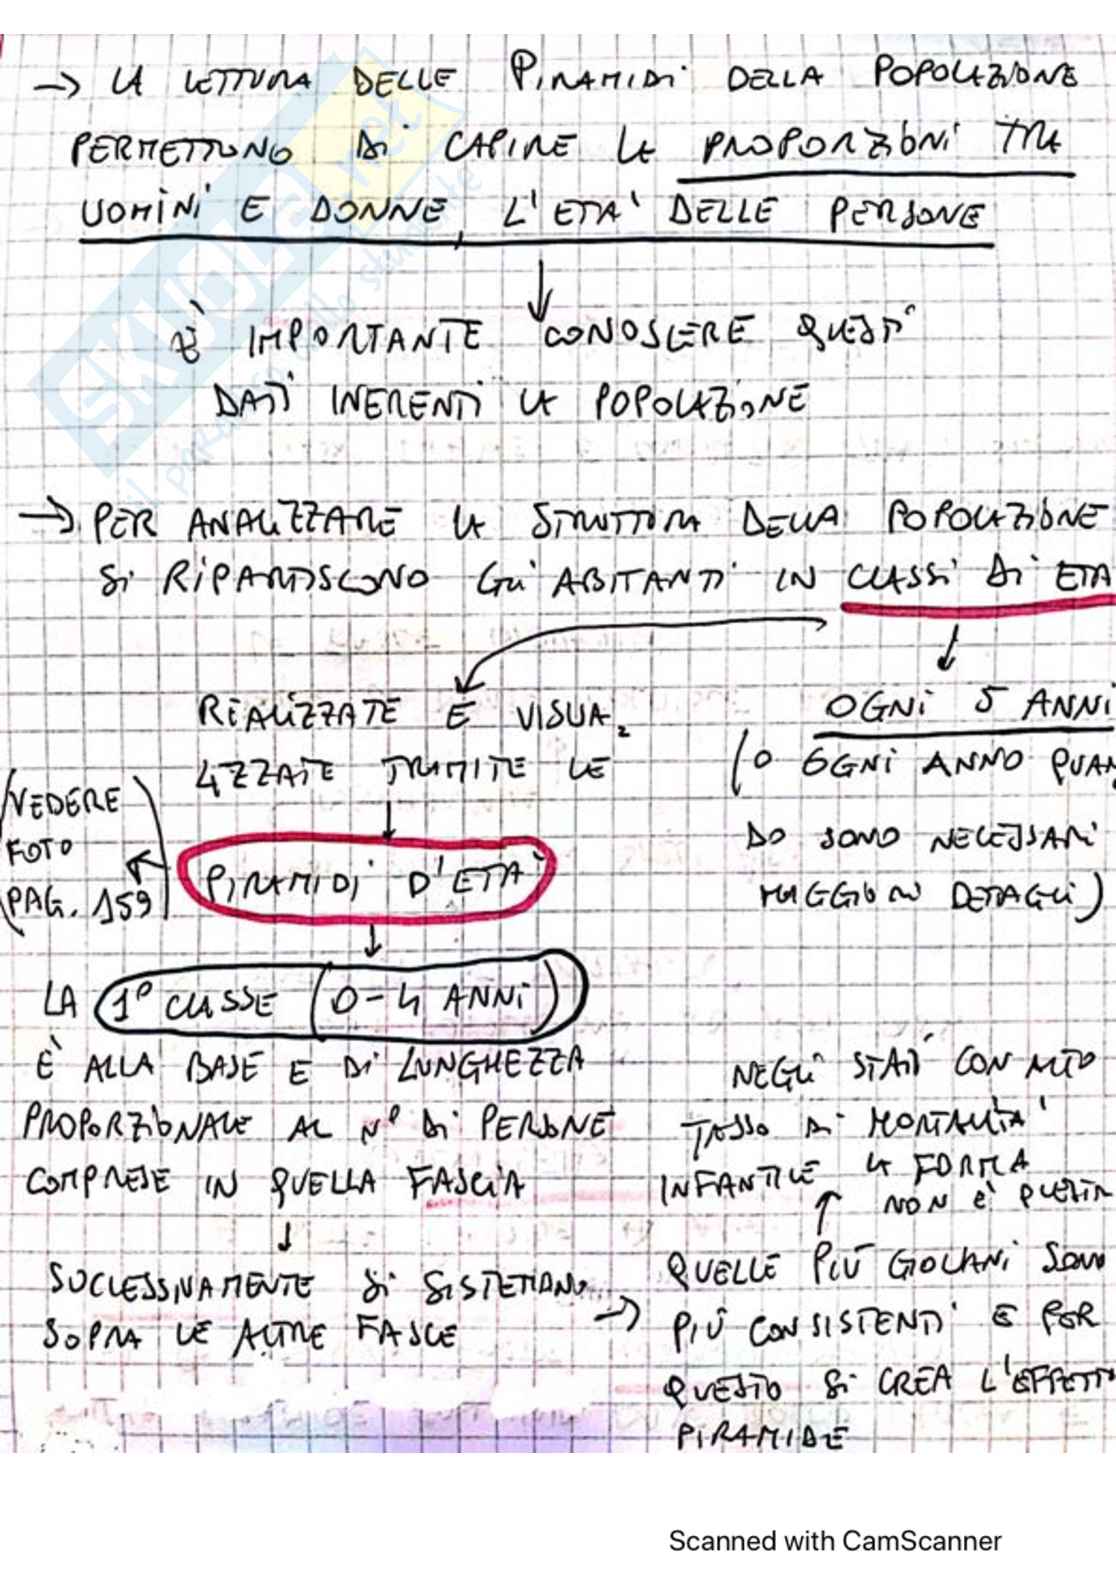 → LA LETTURA DELLE PIRAMIDI DELLA POPOLAZIONE
PERMETTONO DI CAPIRE LE PROPORZIONI TRA
UOMINI E DONNE, L'ETA' DELLE PERSONE
↓
È IMPORTANTE CONOSCERE QUESTI
DATI INERENTI LA POPOLAZIONE
→ PER ANALIZZARE LA STRUTTURA DELLA POPOLAZIONE
SI RIPARTISCONO GLI ABITANTI IN CLASSI DI ETA
↓
OGNI 5 ANNI
(O OGNI ANNO QUAN
DO SONO NECESSARI
MAGGIORI DETAGLI)
REALIZZATE E VISUA
LIZZATE TRAMITE LE
↓
PIRAMIDI D'ETÀ
(VEDERE
FOTO
PAG. 159)
↓
LA 1° CLASSE (0-4 ANNI)
È ALLA BASE E DI LUNGHEZZA
PROPORZIONALE AL N° DI PERSONE
COMPRESE IN QUELLA FASCIA
↓
SUCCESSIVAMENTE SI SISTEMANO
SOPRA LE ALTRE FASCE
→ QUELLE PIÙ GIOVANI SONO
PIÙ CONSISTENTI E PER
QUESTO SI CREA L'EFFETTO
PIRAMIDE
↑
NEGLI STATI CON ALTO
TASSO DI MORTALITA'
INFANTILE LA FORMA
NON È QUESTA
SKUOLA.net
Scanned with CamScanner